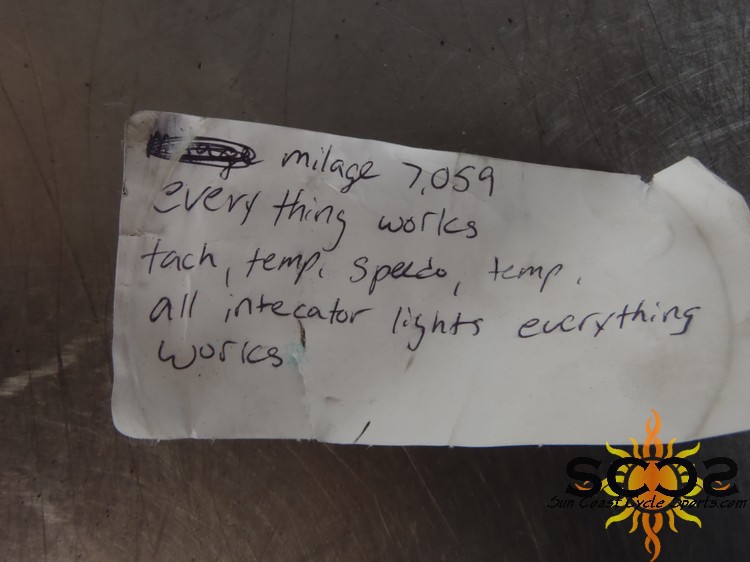 milage 7,059
every thing works
tach, temp. speedo, temp.
all intecator lights everything
works
SCCS
Sun Coast Cycle Sports.com